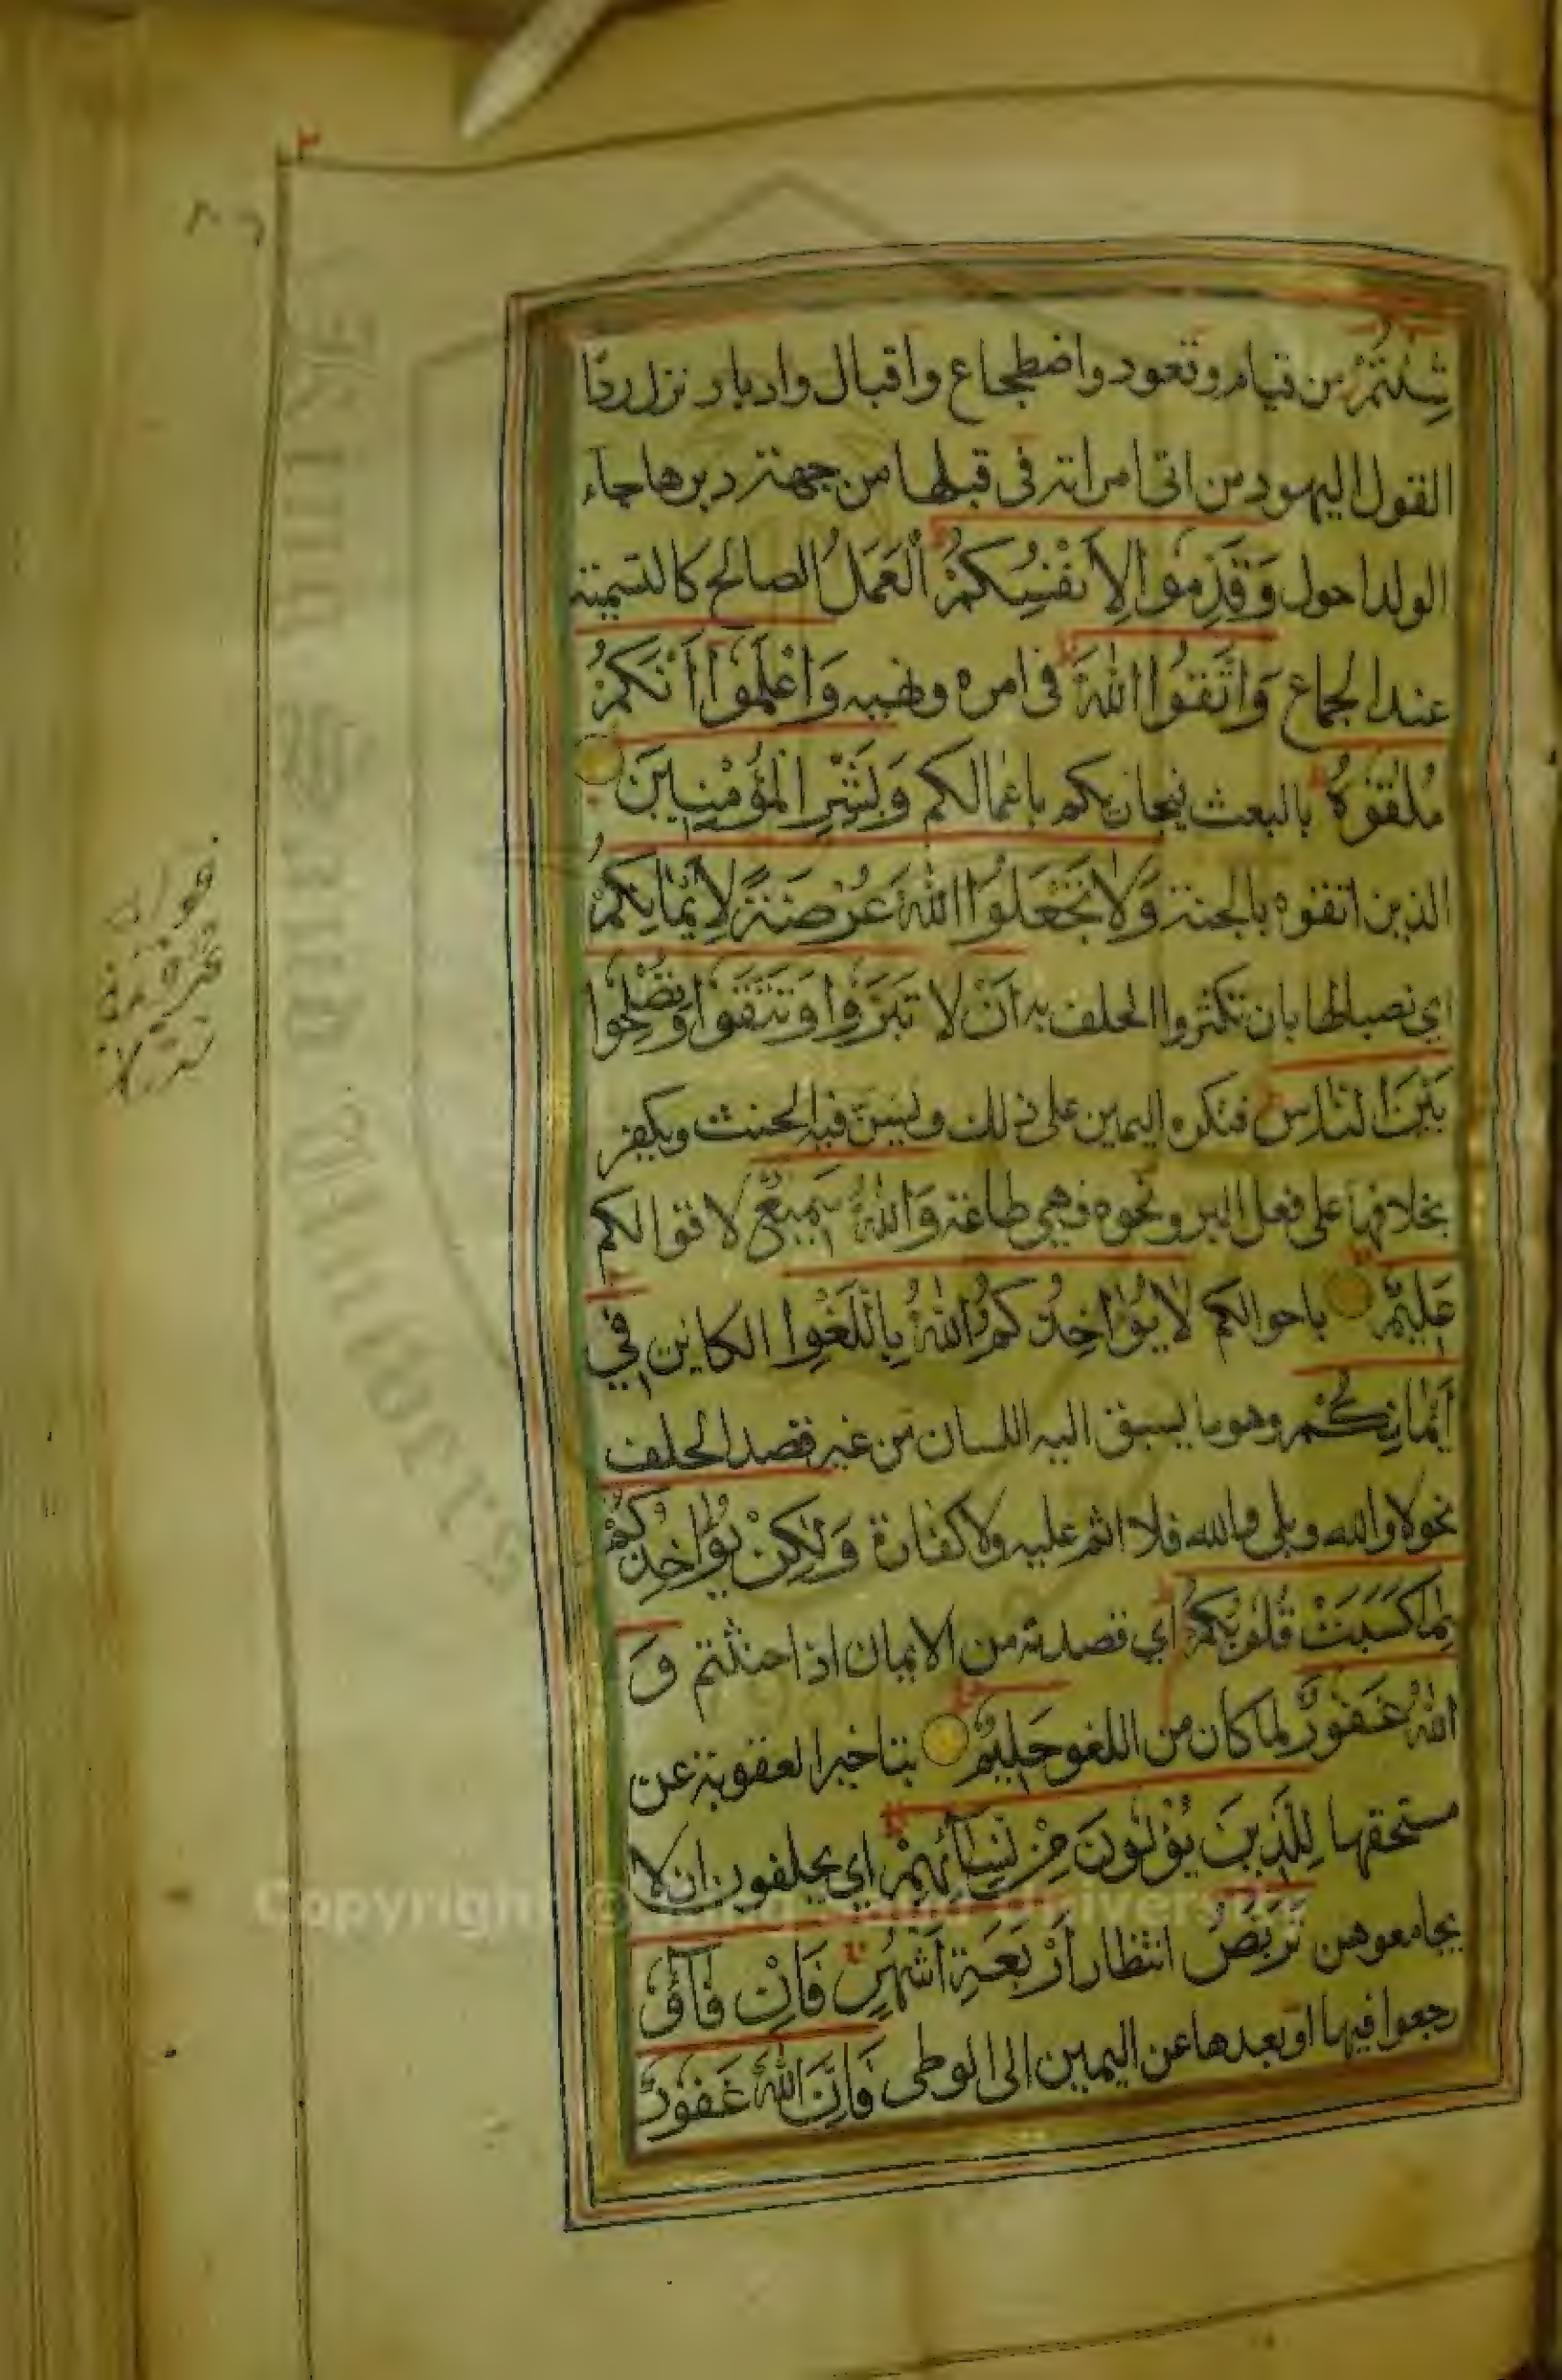 شِئْتُمْ من قيام وقعود واضطجاع واقبال وادبار نزل ردّا
القول اليهود من اتى امراته فى قبلها من جهة دبرها جاء
الولد احول وَقَدِّمُوا لِاَنْفُسِكُمْ اَلْعَمَلُ الصالح كالتسمية
عند الجماع وَاتَّقُوا اللّٰهَ فى امره ونهيه وَاعْلَمُوْا اَنَّكُمْ
مُلٰقُوْهُ بالبعث فيجازيكم باعمالكم وَبَشِّرِ الْمُؤْمِنِيْنَ
الذين اتقوه بالجنة وَلَا تَجْعَلُوا اللّٰهَ عُرْضَةً لِاَيْمَانِكُمْ
اي نصبا لها بان تكثروا الحلف به اَنْ لا تَبَرُّوا وَتَتَّقُوا وَتُصْلِحُوا
بَيْنَ النَّاسِ فتكره اليمين على ذلك ويسنّ فيه الحنث ويكفر
بخلافها على فعل البر ونحوه فهي طاعة وَاللّٰهُ سَمِيْعٌ لاقوالكم
عَلِيْمٌ باحوالكم لَا يُؤَاخِذُكُمُ اللّٰهُ بِاللَّغْوِا الكاين فِي
اَيْمَانِكُمْ وهو ما يسبق اليه اللسان من غير قصد الحلف
نحو لا والله وبلى والله فلا اثم عليه ولا كفارة وَلٰكِنْ يُؤَاخِذُكُمْ
بِمَا كَسَبَتْ قُلُوْبُكُمْ اي قصدته من الايمان اذا حنثتم وَ
اللّٰهُ غَفُوْرٌ لما كان من اللغو حَلِيْمٌ بتاخير العقوبة عن
مستحقها لِلَّذِيْنَ يُؤْلُوْنَ مِنْ نِسَائِهِمْ اي يحلفون ان لا
يجامعوهن تَرَبُّصُ انتظار اَرْبَعَةِ اَشْهُرٍ فَاِنْ فَاؤُ
رجعوا فيها او بعدها عن اليمين الى الوطى فَاِنَّ اللّٰهَ غَفُوْرٌ
Copyright © King Saud University